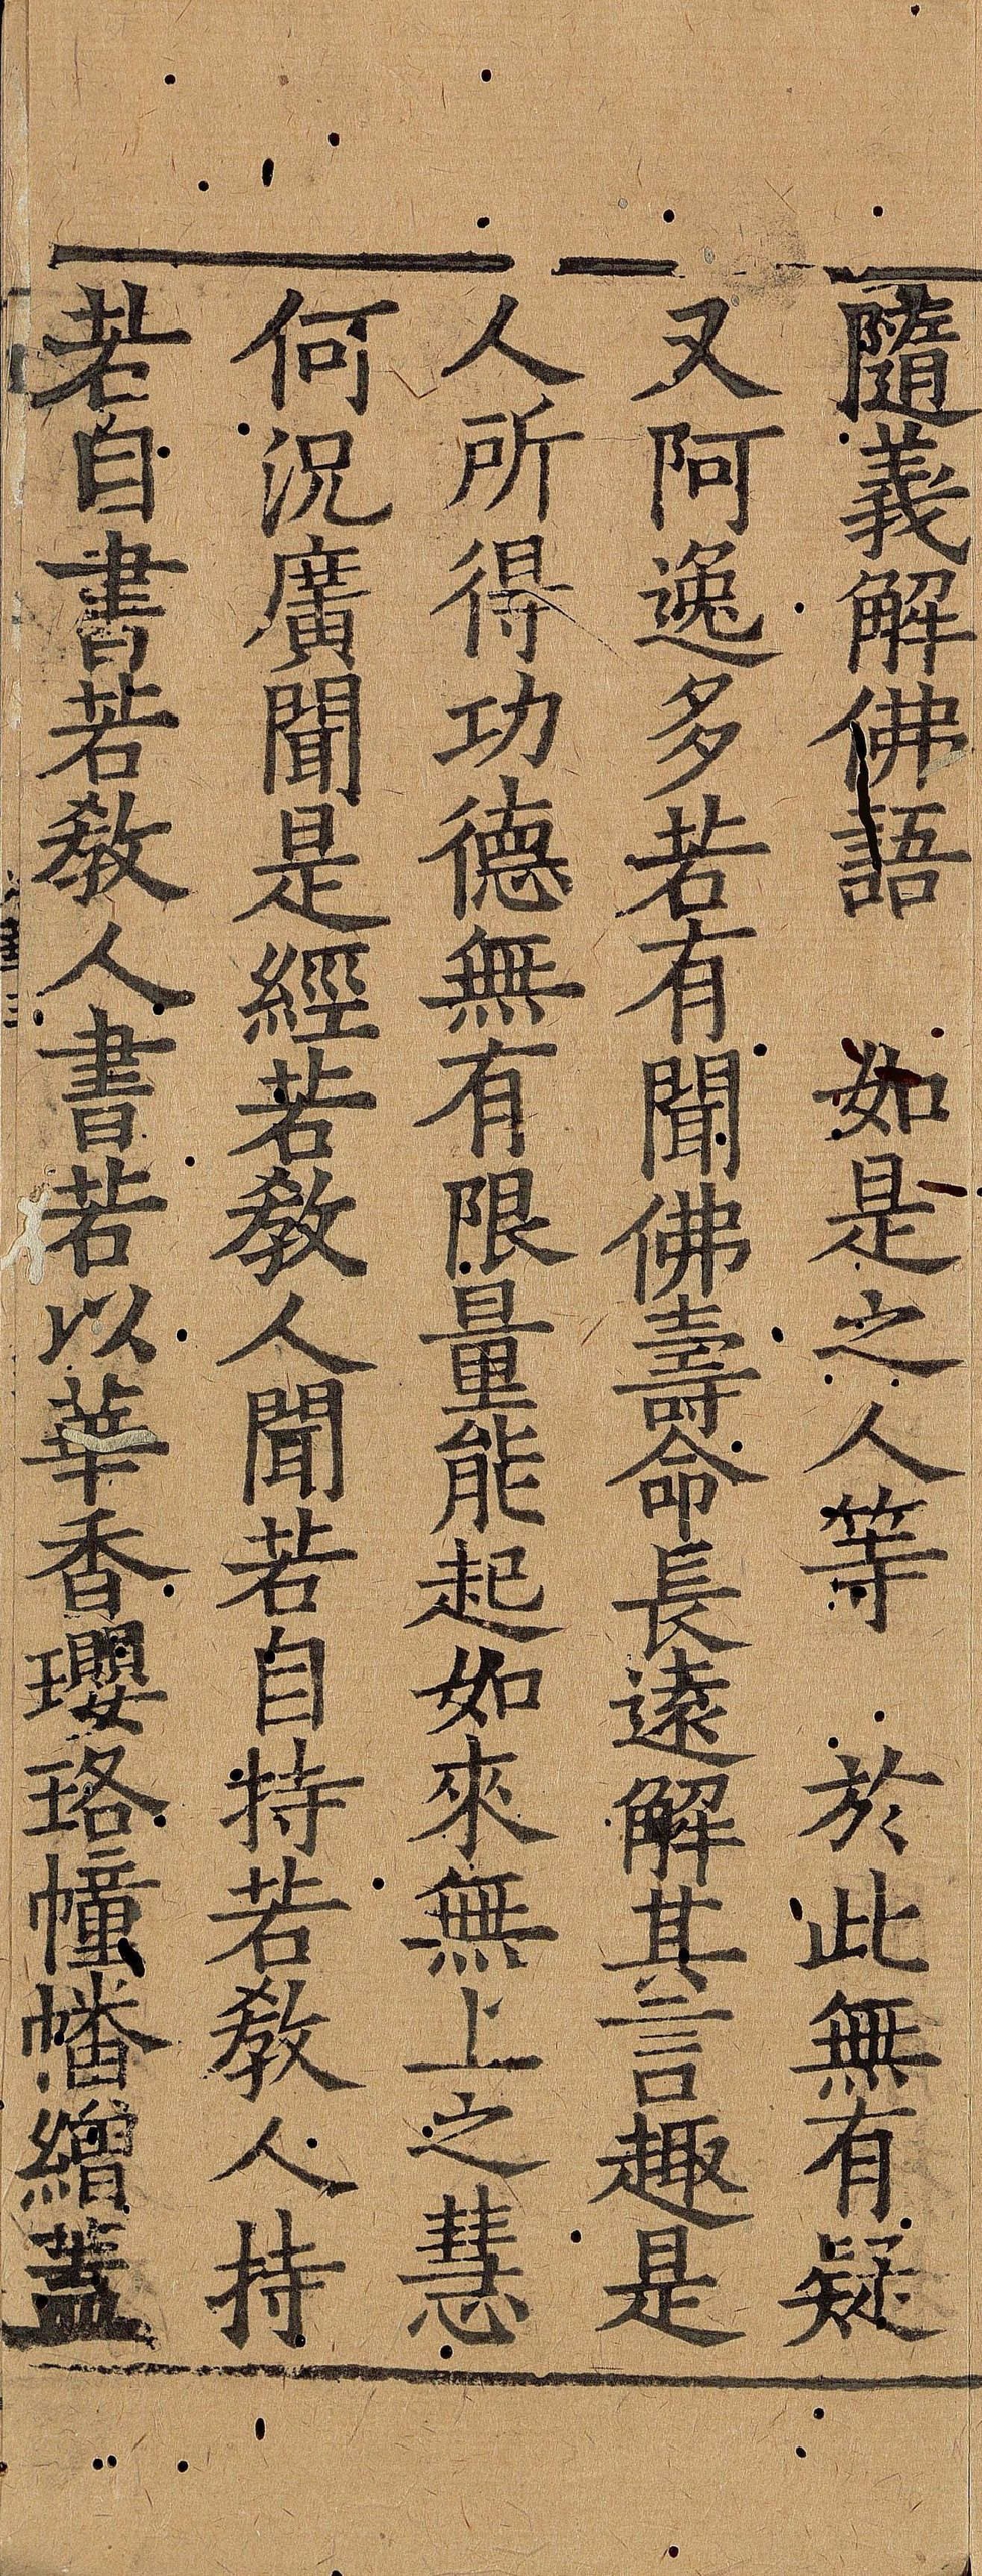 隨義解佛語　如是之人等　於此無有疑
又阿逸多若有聞佛壽命長遠解其言趣是
人所得功德無有限量能起如來無上之慧
何況廣聞是經若教人聞若自持若教人持
若自書若教人書若以華香瓔珞幢幡繒蓋